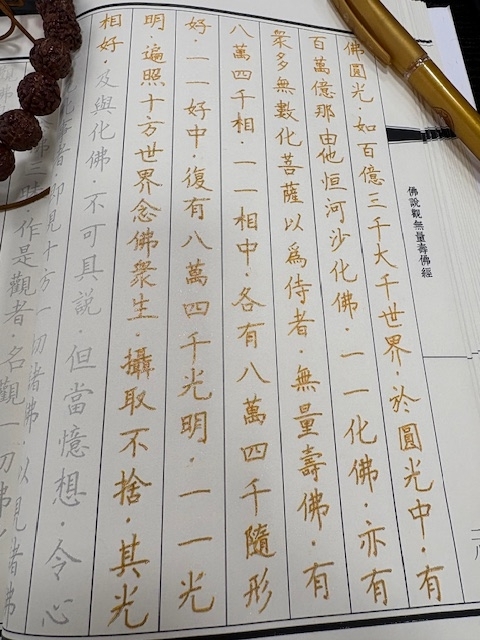 佛說觀無量壽佛經
佛圓光·如百億三千大千世界·於圓光中·有
百萬億那由他恒河沙化佛·一一化佛·亦有
衆多無數化菩薩以爲侍者·無量壽佛·有
八萬四千相·一一相中·各有八萬四千隨形
好·一一好中·復有八萬四千光明·一一光
明·遍照十方世界念佛衆生·攝取不捨·其光
相好·及與化佛·不可具說·但當憶想·令心
者·即見十方一切諸佛·以見諸佛
作是觀者·名觀一切佛